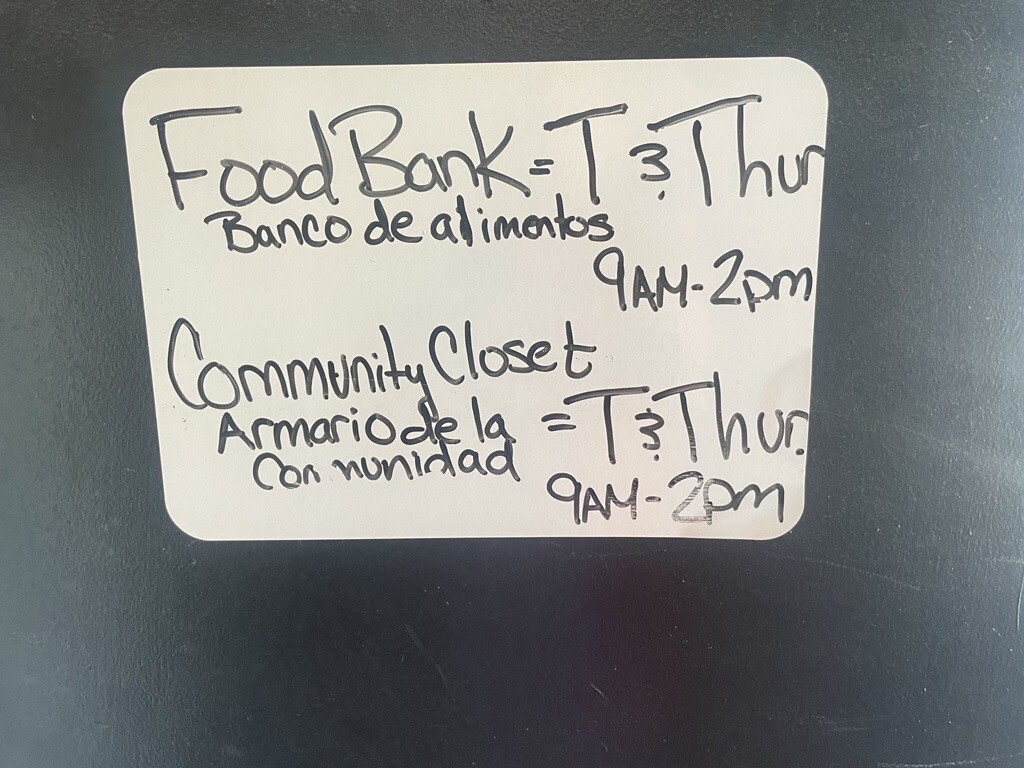 Food Bank = T & Thur
Banco de alimentos
9AM - 2pm
Community Closet
Armario de la = T & Thur.
Comunidad
9AM - 2pm